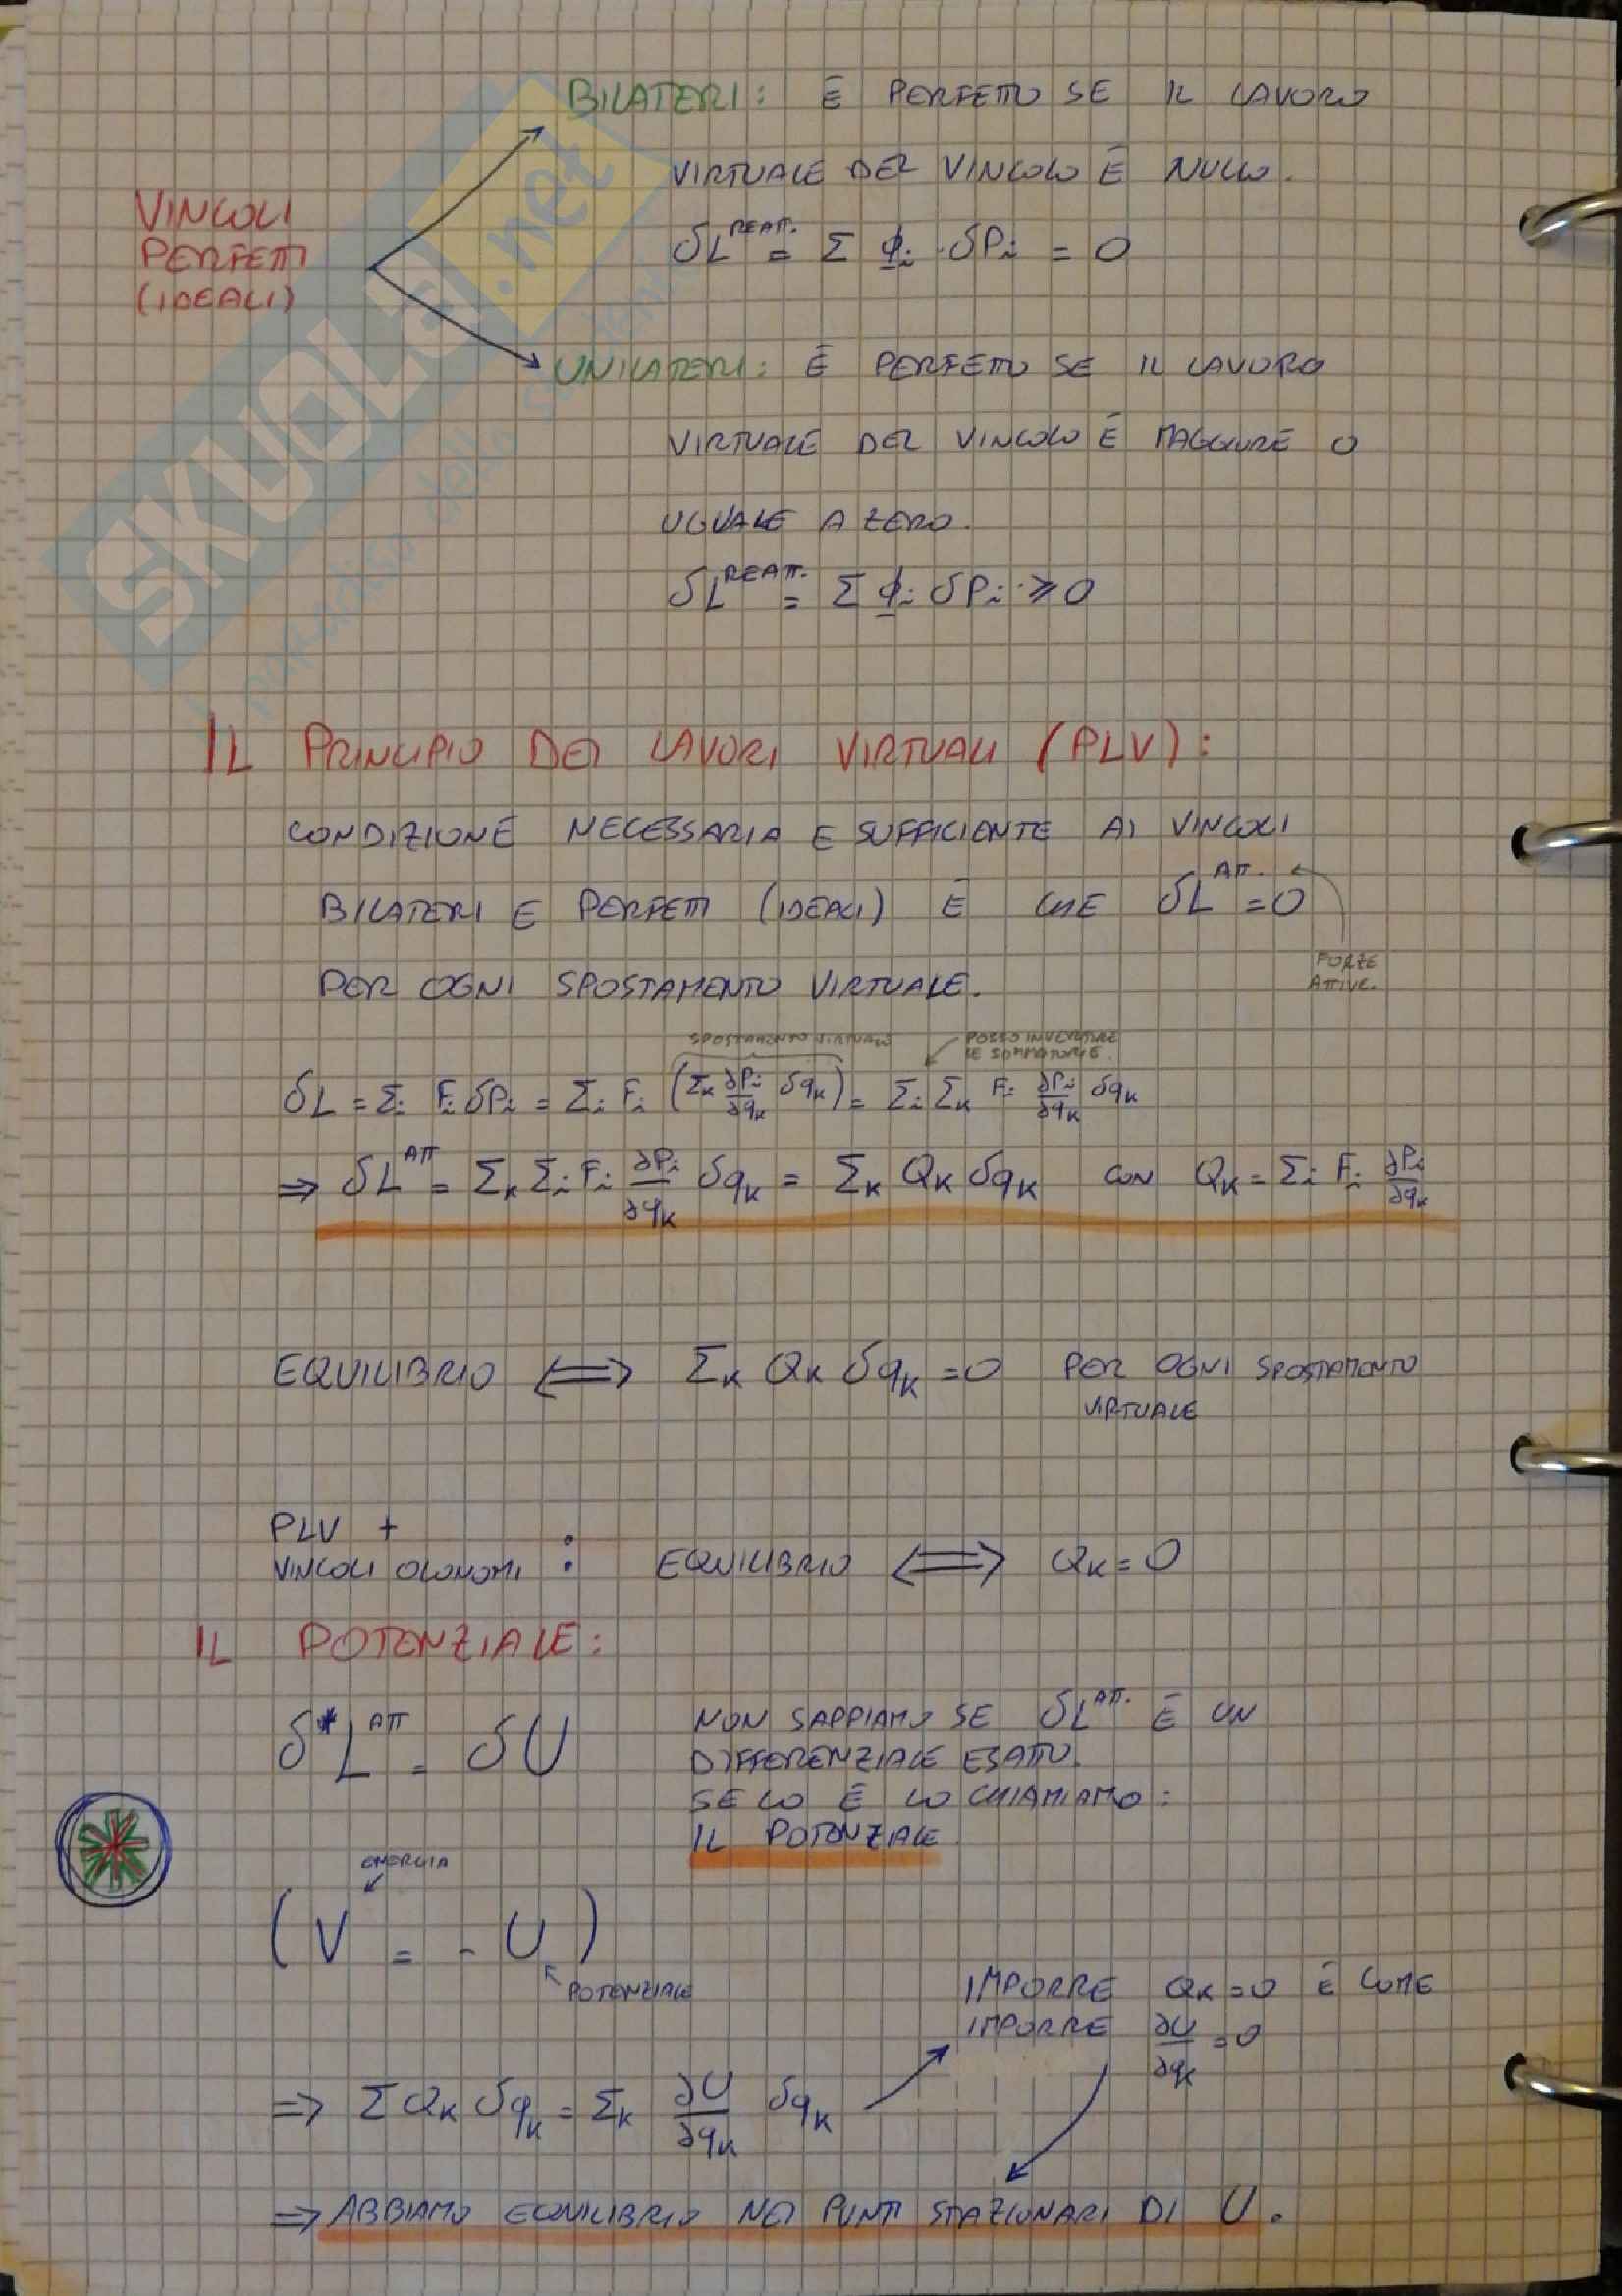 BILATERI: È PERFETTO SE IL LAVORO
VIRTUALE DEL VINCOLO È NULLO.
δL^REATT. = Σ ϕi · δPi = 0
VINCOLI
PERFETTI
(IDEALI)
UNILATERI: È PERFETTO SE IL LAVORO
VIRTUALE DEL VINCOLO È MAGGIORE O
UGUALE A ZERO.
δL^REATT. = Σ ϕi δPi ≥ 0
SKUOLA.net
IL PRINCIPIO DEI LAVORI VIRTUALI (PLV):
CONDIZIONE NECESSARIA E SUFFICIENTE AI VINCOLI
BILATERI E PERFETTI (IDEALI) È CHE δL^ATT. = 0
FORZE
ATTIVE.
PER OGNI SPOSTAMENTO VIRTUALE.
SPOSTAMENTO VIRTUALE
POSSO INVERTIRE
LE SOMMATORIE.
δL = Σi Fi δPi = Σi Fi (Σk ∂Pi/∂qk δqk) = Σi Σk Fi ∂Pi/∂qk δqk
⇒ δL^ATT = Σk Σi Fi ∂Pi/∂qk δqk = Σk Qk δqk CON Qk = Σi Fi ∂Pi/∂qk
EQUILIBRIO ⟺ Σk Qk δqk = 0 PER OGNI SPOSTAMENTO
VIRTUALE
PLV +
VINCOLI OLONOMI : EQUILIBRIO ⟺ Qk = 0
IL POTENZIALE:
δ*L^ATT = δU
NON SAPPIAMO SE δL^ATT. È UN
DIFFERENZIALE ESATTO.
SE LO È LO CHIAMIAMO:
IL POTENZIALE
ENERGIA
(V = - U)
POTENZIALE
IMPORRE Qk = 0 È COME
IMPORRE ∂U/∂qk = 0
⇒ Σ Qk δqk = Σk ∂U/∂qk δqk
⇒ ABBIAMO EQUILIBRIO NEI PUNTI STAZIONARI DI U.